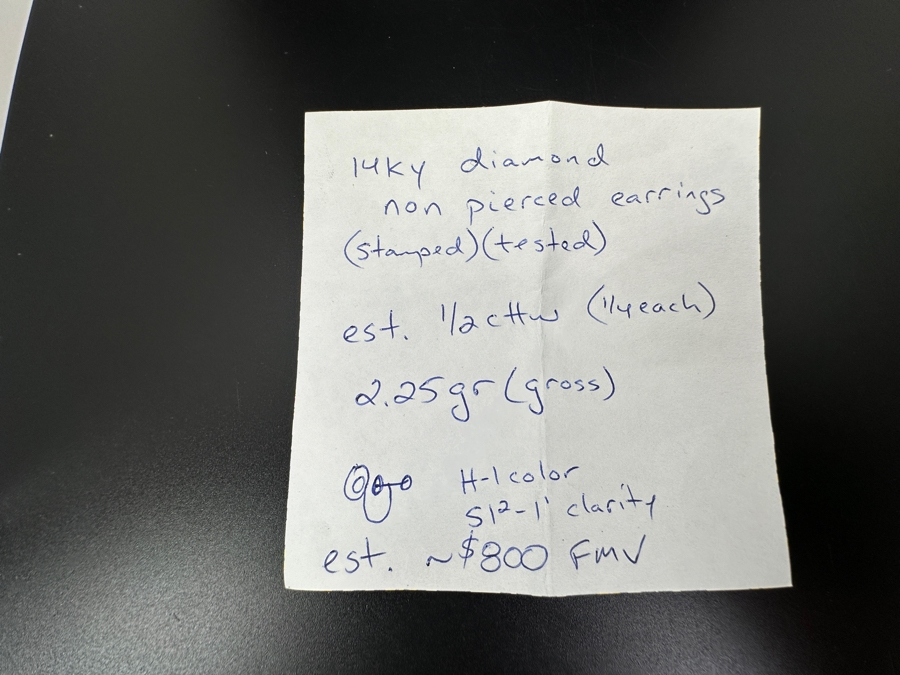 14KY diamond
non pierced earrings
(stamped)(tested)
est. 1/2 cttw (1/4 each)
2.25gr (gross)
H-I color
SI²-I¹ clarity
est. ~$800 FMV